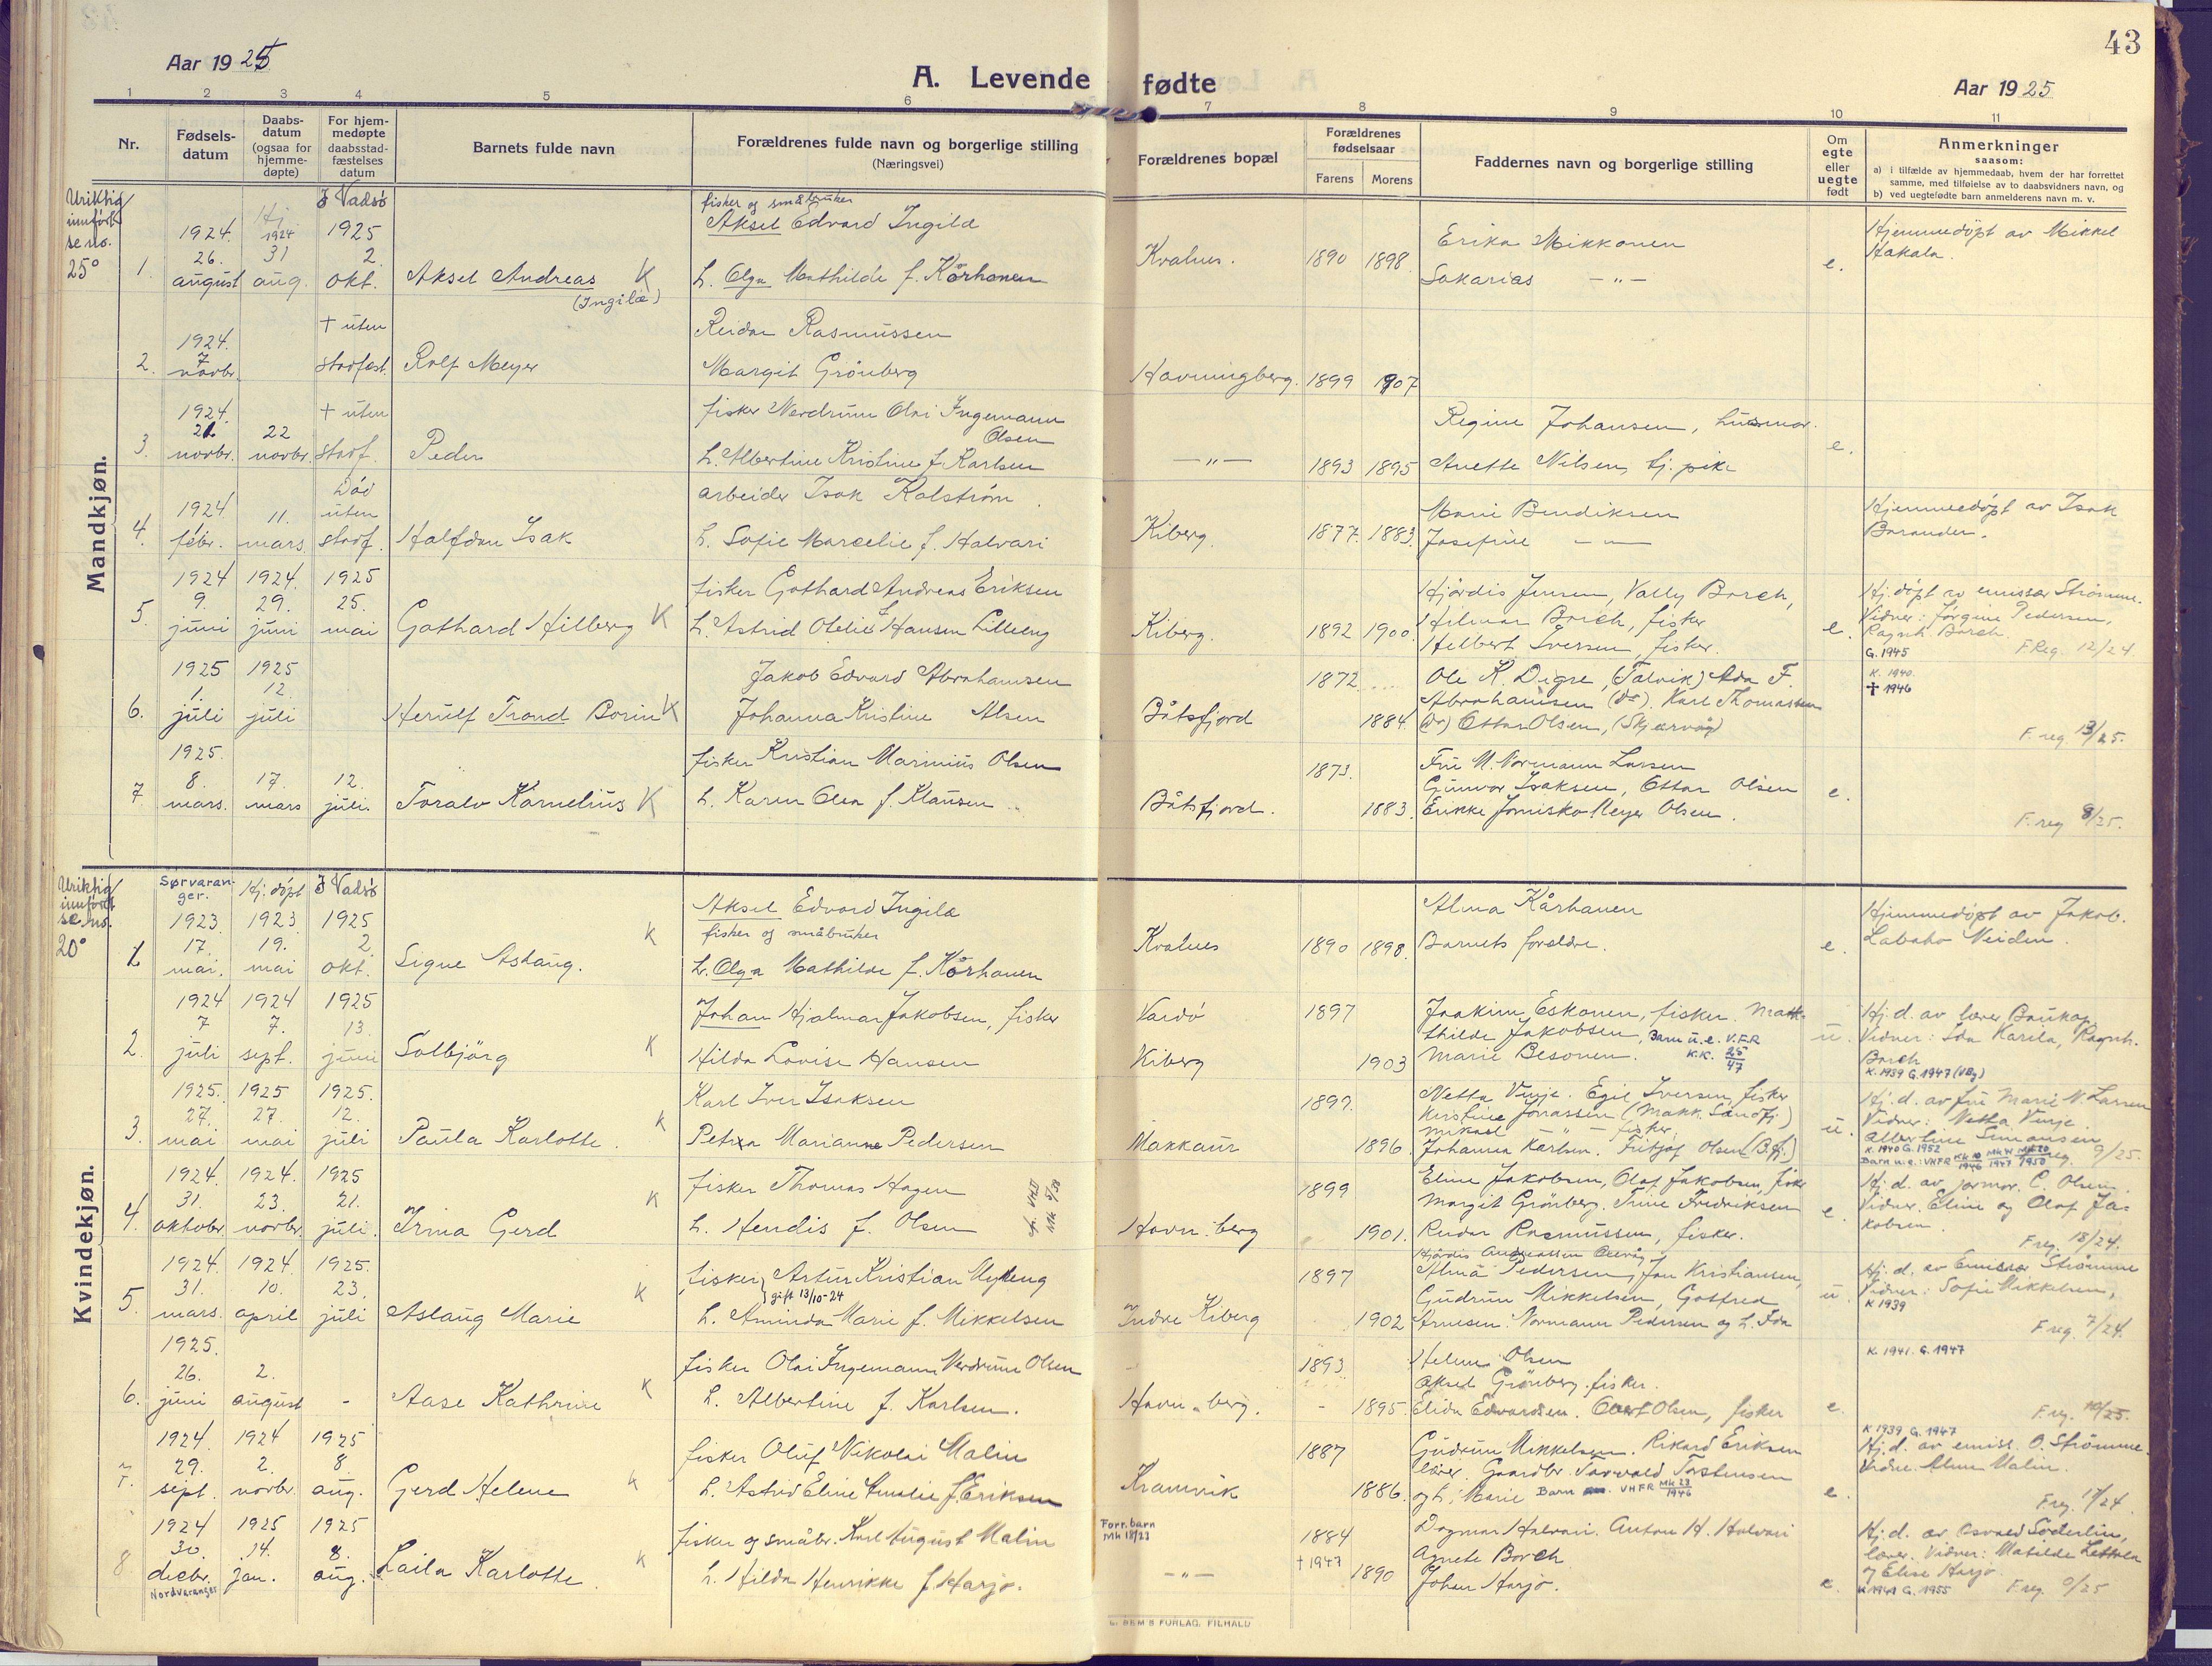 43
Aar 1925
A. Levende fødte
Aar 1925
1 2 3 4 5 6 7 8 9 10 11
Nr.
Fødsels-
datum
Daabs-
datum
(ogsaa for
hjemme-
døpte)
For hjem-
medøpte
daabsstad-
fæstelses
datum
Barnets fulde navn
Forældrenes fulde navn og borgerlige stilling
(Næringsvei)
Forældrenes bopæl
Forældrenes
fødselsaar
Farens Morens
Faddernes navn og borgerlige stilling
Om
egte
eller
uegte
født
Anmerkninger
saasom:
a) i tilfælde av hjemmedaab, hvem der har forrettet
samme, med tilføielse av to daabsvidners navn, og
b) ved uegtefødte barn anmelderens navn m. v.
Mandkjøn.
Uriktig
innført
se no.
25°
1.
1924.
26.
august
Hj.
1924
31
aug.
I Vadsø
1925
2.
okt.
Aksel Andreas K
(Ingilæ)
fisker og småbruker
Aksel Edvard Ingilæ
h. Olga Mathilde f. Kørhonen
Kvalnes.
1890 1898.
Erika Mikkonen
Sakarias —„—
e.
Hjemmedøpt av Mikkel
Hakala.
2.
1924.
7
novbr.
† uten
stadfest.
Rolf Meyer
Reidar Rasmussen
Margit Grønberg
Havningberg.
1899 1907
3.
1924.
21.
novbr.
22
novbr.
† uten
stadf.
Peder
fisker Nerdrum Olai Ingemann
Olsen
h. Albertine Kristine f. Karlsen
—„—
1893 1895
Regine Johansen, husmor.
Anette Nilsen, tj. pike
e.
4.
1924
febr.
11.
mars.
Død
uten
stadf.
Halfdan Isak
arbeider Isak Kalstrøm.
h. Sofie Marcelie f. Halvari
Kiberg.
1877. 1883.
Marie Bendiksen
Josefine — —
Hjemmedøpt av Isak
Barander.
5.
1924
9.
juni
1924.
29.
juni
1925
25.
mai
Gothard Hilberg K
fisker Gothard Andreas Eriksen
h. Astrid Otelie f. Hansen Lilleeng
Kiberg.
1892 1900.
Hjørdis Jensen, Vally Borch,
Hilmar Borch, fisker
Helbert Iversen, fisker.
e.
Hj. døpt av emissær Strømme.
Vidner: Jørgine Pedersen,
Ragnh. Borch.
G. 1945 F.Reg. 12/24.
6.
1925
1.
juli
1925
12.
juli
Herulf Trond Borin K
Jakob Edvard Abrahamsen
Johanna Kristine Alsen
Båtsfjord
1872
1884.
Ole K. Digre, (Talvik) Ada F.
Abrahamsen (do). Karl Thomassen
(do) Ottar Olsen, (Skjærvøy)
K. 1940.
✝ 1946
F. reg. 13/25.
7.
1925.
8.
mars.
17.
mars
12.
juli.
Toralv Kornelius K
fisker Kristian Marinius Olsen
h. Karen Olea f. Klausen
Båtsfjord.
1873.
1883.
Fru M. Normann Larsen
Gunvor Isaksen, Ottar Olsen
Meyer Olsen.
e.
F. reg 8/25.
Kvindekjøn.
Uriktig
innført
se no.
20°
1.
Sørvaran-
ger.
1923
17.
mai.
Hj. døpt
1923
19.
mai
I Vadsø
1925
2
okt.
Signe Aslaug. K
Aksel Edvard Ingilæ
fisker og småbruker
h. Olga Mathilde f. Kørhonen
Kvalnes
1890 1898.
Alma Kårhanen
Barnets forældre.
e.
Hjemmedøpt av Jakob.
Labaho Neiden.
2.
1924
7
juli
1924
7.
sept.
1925
13.
juni
Solbjørg K
Johan Hjalmar Jakobsen, fisker
Hilda Lovise Hansen
Vardø
Kiberg
1897
1903
Joakim Eskonen, fisker. Mat-
thilde Jakobsen, Barn u.e. V.F.R
Marie Besonen. K.K. 25/47
u.
Hj. d. av lærer
Vidner: Ida Karila, Ragnh.
Borch
K. 1939 G. 1947 (VBg)
3.
1925.
27.
mai
1925
27.
mai
1925
12.
juli
Paula Karlotte. K
Karl Iver Isaksen
Petra Marianne Pedersen
Makkaur
1897.
1896.
Netta Vinje. Egil Iversen, fisker
Kristine Jonassen (Makk. Sandfj)
Mikael — „ — fisker.
Johanna Karlsen. Fritjof Olsen (B.fj.)
u.
Hj. d. av fru Marie N. Larsen
Vidner: Netta Vinje.
Albertine Simonsen
K. 1940 G. 1952
Barn u.e.: VHFR 9/25.
4.
1924.
31.
oktober
1924.
23.
novbr.
1925
21.
juli.
Irma Gerd K
fisker Thomas Hagen
h. Hendis f. Olsen
Havn.berg
1899
1901.
Eline Jakobsen, Olaf Jakobsen, fisker
Margit Grønberg. Trine Fredriksen
Reidar Rasmussen, fisker.
e.
Hj. d. av jormor. C. Olsen.
Vidner. Eline og Olaf Ja-
kobsen.
F reg. 18/24.
5.
1924
31.
mars.
1924.
10.
april
1925.
23.
juli
Aslaug Marie K
fisker, Artur Kristian Myreng
gift 13/10-24
h. Aminda Marie f. Mikkelsen
Indre Kiberg
1897
1902
Hjørdis Andreassen
Alma Pedersen, Jon Kristiansen,
Gudrun Mikkelsen, Gotfred
Arnesen. Normann Pedersen og h. Ida
u.
Hj. d. av Emissær Strømme
Vidner: Sofie Mikkelsen,
K 1939
F reg. 7/24.
6.
1925.
26.
juni
2.
august
-
Aase Kathrine K
fisker Olai Ingemann Nerdrum Olsen
h. Albertine f. Karlsen.
Havn.berg.
1893
1895.
Helene Olsen
Aksel Grønberg. fisker.
Elida Edvardsen. Olsen, fisker
e.
K. 1941. G. 1947
F. reg. 10/25.
7.
1924.
29.
sept.
1924
2.
novbr.
1925
8.
aug.
Gerd Helene K
fisker Oluf Nikolai Malin
h. Astrid Eline Amalie f. Eriksen
Kramvik
1887
1886.
Gudrun Mikkelsen. Rikard Eriksen
lærer. Gaardbr. Torvald Torstensen
og h. Marie Barn VHFR Mk 23/1946
e.
K 1939 G. 1947
Hj. d. av emiss. O. Strømme.
Vidne. Alma Malin.
F reg. 17/24.
8
1924
30.
decbr.
Nordvaranger
1925
14.
jan.
1925
8.
aug.
Laila Karlotte. K
fisker og småbr. Karl August Malin
h. Hilda Henrikke f. Harjo.
Forr. barn
Mk 18/23
—„—
1884
† 1947
1890
Dagmar Halvari. Anton H. Halvari
Agnete Borch
Johan Harjo.
e.
Hj. d. av Osvald Søderlin,
lærer. Vidner: Matilde
og Elise Harjo.
K 1941 G. 1955 F reg. 0/25
SEM'S FORLAG, F.HALD